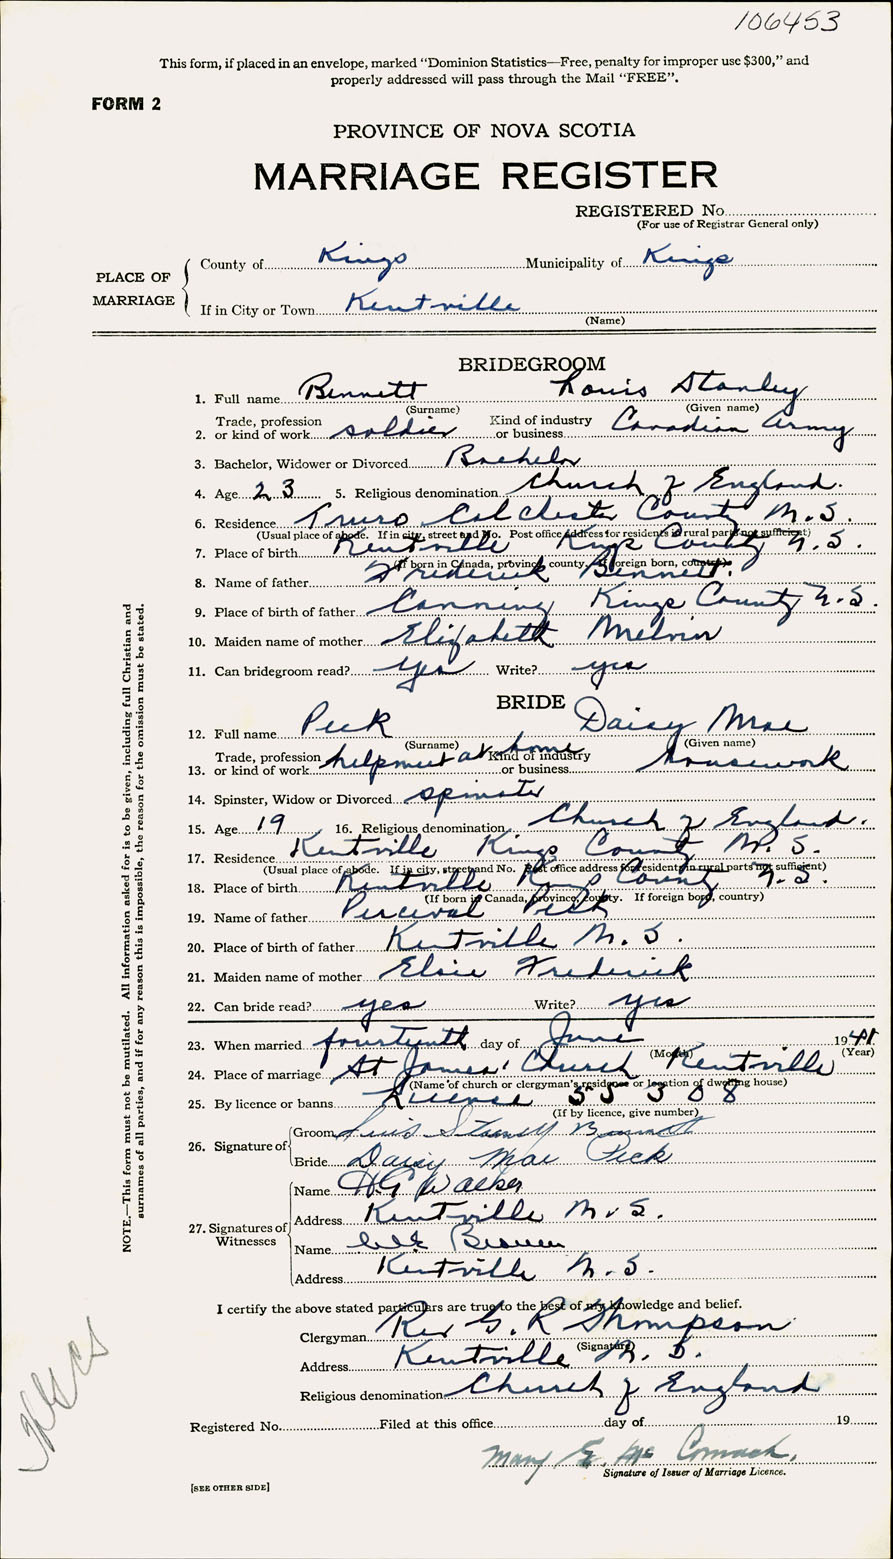 106453
This form, if placed in an envelope, marked "Dominion Statistics—Free, penalty for improper use $300," and
properly addressed will pass through the Mail "FREE".
FORM 2
PROVINCE OF NOVA SCOTIA
MARRIAGE REGISTER
REGISTERED No.
(For use of Registrar General only)
PLACE OF MARRIAGE
County of Kings Municipality of Kings
If in City or Town Kentville
(Name)
BRIDEGROOM
1. Full name Bennett Louis Stanley
(Surname) (Given name)
2. Trade, profession or kind of work soldier Kind of industry or business Canadian Army
3. Bachelor, Widower or Divorced Bachelor
4. Age 23 5. Religious denomination Church of England.
6. Residence Truro Colchester County N.S.
(Usual place of abode. If in city, street and No. Post office address for residents in rural parts not sufficient)
7. Place of birth Kentville Kings County N.S.
(If born in Canada, province, county. If foreign born, country)
8. Name of father Frederick Bennett.
9. Place of birth of father Canning Kings County N.S.
10. Maiden name of mother Elizabeth Melvin
11. Can bridegroom read? yes Write? yes
BRIDE
12. Full name Peck Daisy Mae
(Surname) (Given name)
13. Trade, profession or kind of work helpmeet at home Kind of industry or business housework
14. Spinster, Widow or Divorced spinster
15. Age 19 16. Religious denomination Church of England.
17. Residence Kentville Kings County N.S.
(Usual place of abode. If in city, street and No. Post office address for residents in rural parts not sufficient)
18. Place of birth Kentville Kings County N.S.
(If born in Canada, province, county. If foreign born, country)
19. Name of father Percival Peck
20. Place of birth of father Kentville N.S.
21. Maiden name of mother Elsie Frederick
22. Can bride read? yes Write? yes
23. When married fourteenth day of June 1941
(Month) (Year)
24. Place of marriage St James' Church Kentville
(Name of church or clergyman's residence or location of dwelling house)
25. By licence or banns License 55308
(If by licence, give number)
26. Signature of
Groom Louis Stanley Bennett
Bride Daisy Mae Peck
27. Signatures of Witnesses
Name Walker
Address Kentville N.S.
Name
Address Kentville N.S.
I certify the above stated particulars are true to the best of my knowledge and belief.
Clergyman Rev G. R Thompson
(Signature)
Address Kentville N.S.
Religious denomination Church of England
Registered No. Filed at this office day of 19
Mary E. McCormack.
Signature of Issuer of Marriage Licence.
[SEE OTHER SIDE]
NOTE.—This form must not be mutilated. All information asked for is to be given, including full Christian and
surnames of all parties, and if for any reason this is impossible, the reason for the omission must be stated.